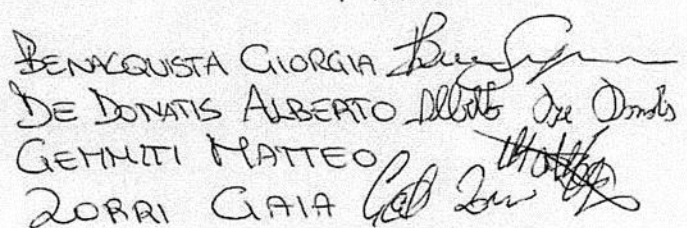 BENACQUISTA GIORGIA
DE DONATIS ALBERTO Alberto De Donatis
GEMMITI MATTEO
ZORRI GAIA